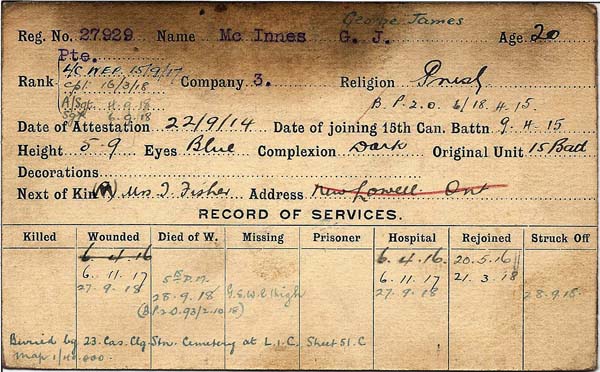 George James
Reg. No. 27929 Name Mc Innes G. J. Age 20
Pte.
Rank L/C W.E.F. 15/9/17 Company 3. Religion Presb
Cpl. 16/3/18
B.P.2.0. 6/18.4.15.
A/Sgt. 4.9.18
Sgt. 6.9.18
Date of Attestation 22/9/14 Date of joining 15th Can. Battn 9.4.15
Height 5-9 Eyes Blue Complexion Dark Original Unit 15 Batt
Decorations
Next of Kin (M) Mrs J. Fisher Address New Lowell Ont
RECORD OF SERVICES.
Killed Wounded Died of W. Missing Prisoner Hospital Rejoined Struck Off
6.4.16 6.4.16. 20.5.16
6.11.17 6.11.17 21.3.18
27.9.18 28.9.18 G.S.W. Thigh 27.9.18 28.9.18
(B.P.2.0.93/2.10.18)
Buried by 23. Cas. Clg. Stn. Cemetery at L.1.C. Sheet 51.C
map 1/40.000.